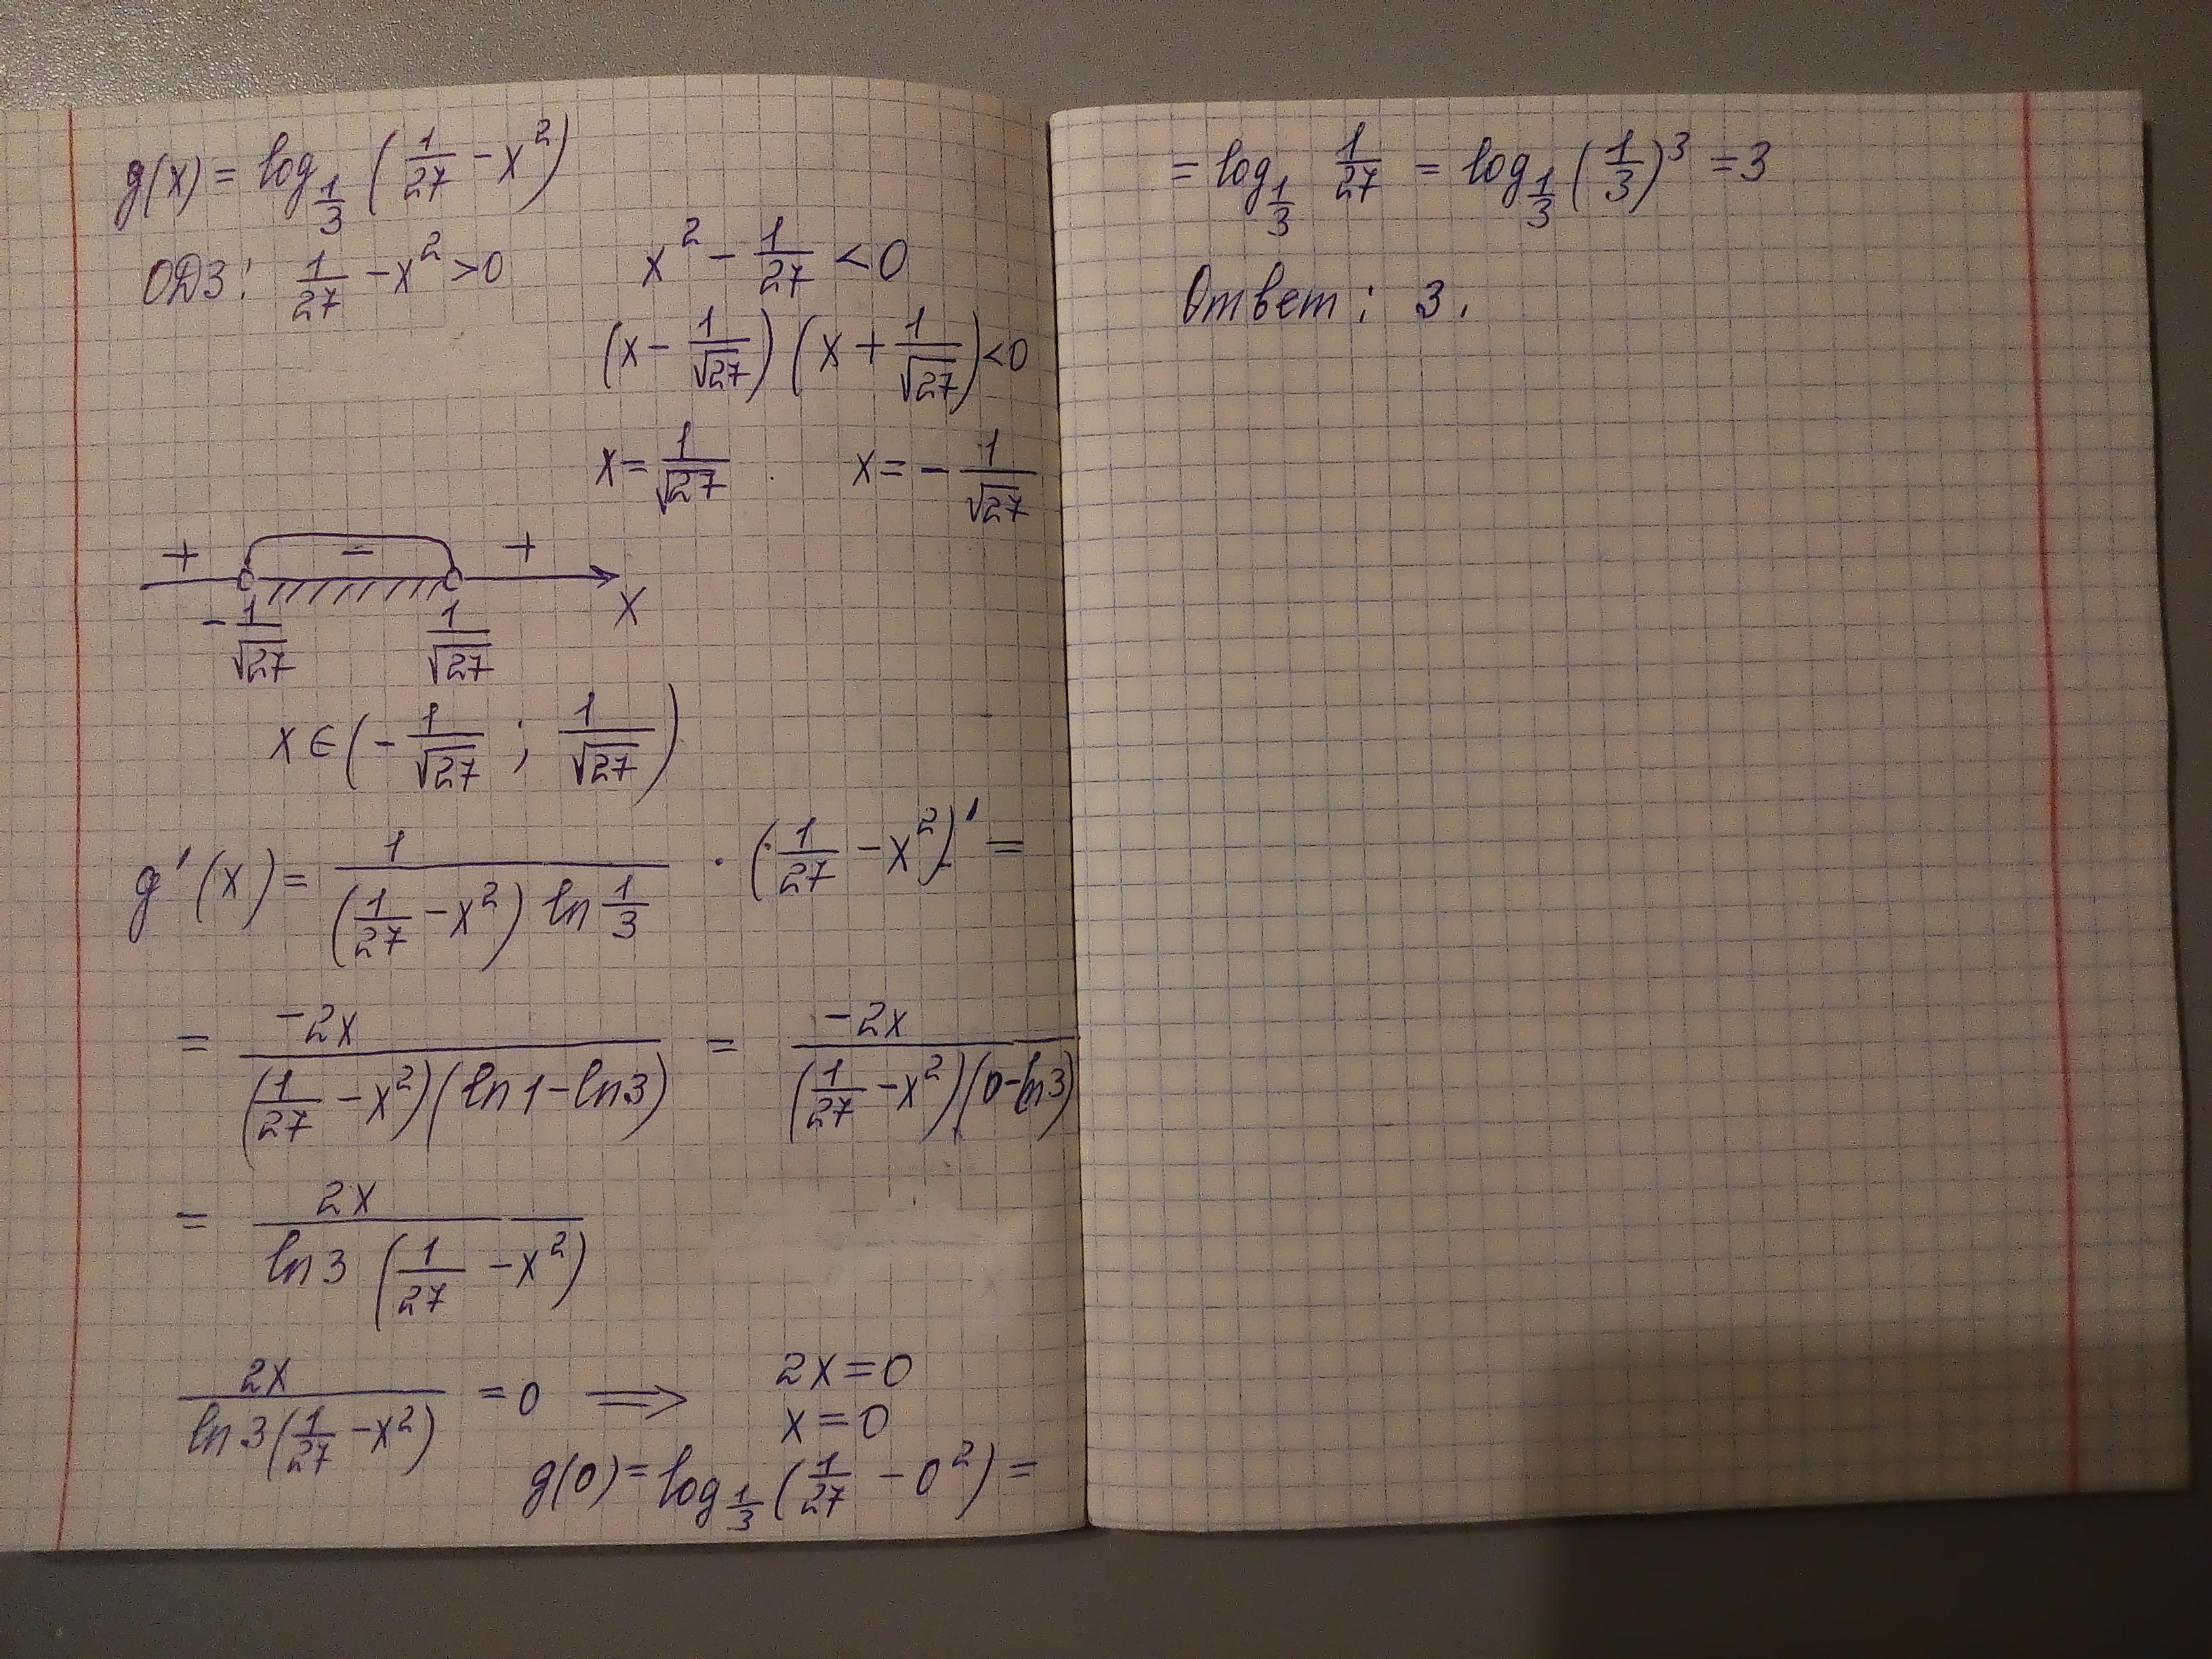 g(x) = log_{1/3} (1/27 - x²)
ОДЗ: 1/27 - x² > 0 x² - 1/27 < 0
(x - 1/√27) (x + 1/√27) < 0
x = 1/√27 x = - 1/√27
+ - +
- 1/√27 1/√27 x
x ∈ (- 1/√27 ; 1/√27)
g'(x) = 1/((1/27 - x²) ln 1/3) · (1/27 - x²)' =
= -2x/((1/27 - x²)(ln1 - ln3)) = -2x/((1/27 - x²)(0 - ln3))
= 2x/(ln3 (1/27 - x²))
2x/(ln3(1/27 - x²)) = 0 ⟹ 2x = 0
x = 0
g(0) = log_{1/3} (1/27 - 0²) =
= log_{1/3} 1/27 = log_{1/3} (1/3)³ = 3
Ответ: 3.